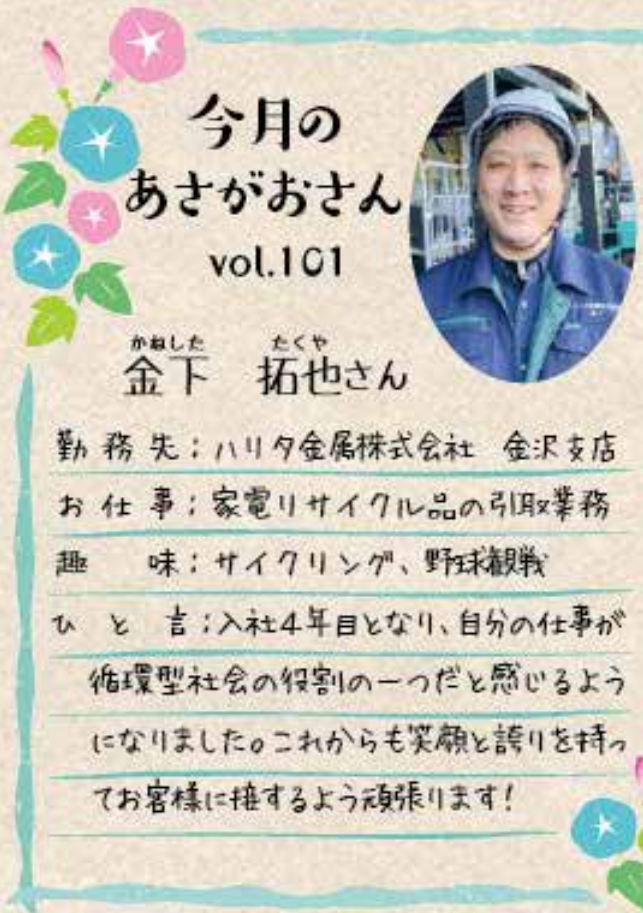 今月の
あさがおさん
vol.101
かねした たくや
金下 拓也さん
勤務先：ハリタ金属株式会社 金沢支店
お仕事：家電リサイクル品の引取業務
趣味：サイクリング、野球観戦
ひと言：入社4年目となり、自分の仕事が
循環型社会の役割の一つだと感じるよう
になりました。これからも笑顔と誇りを持っ
てお客様に接するよう頑張ります！